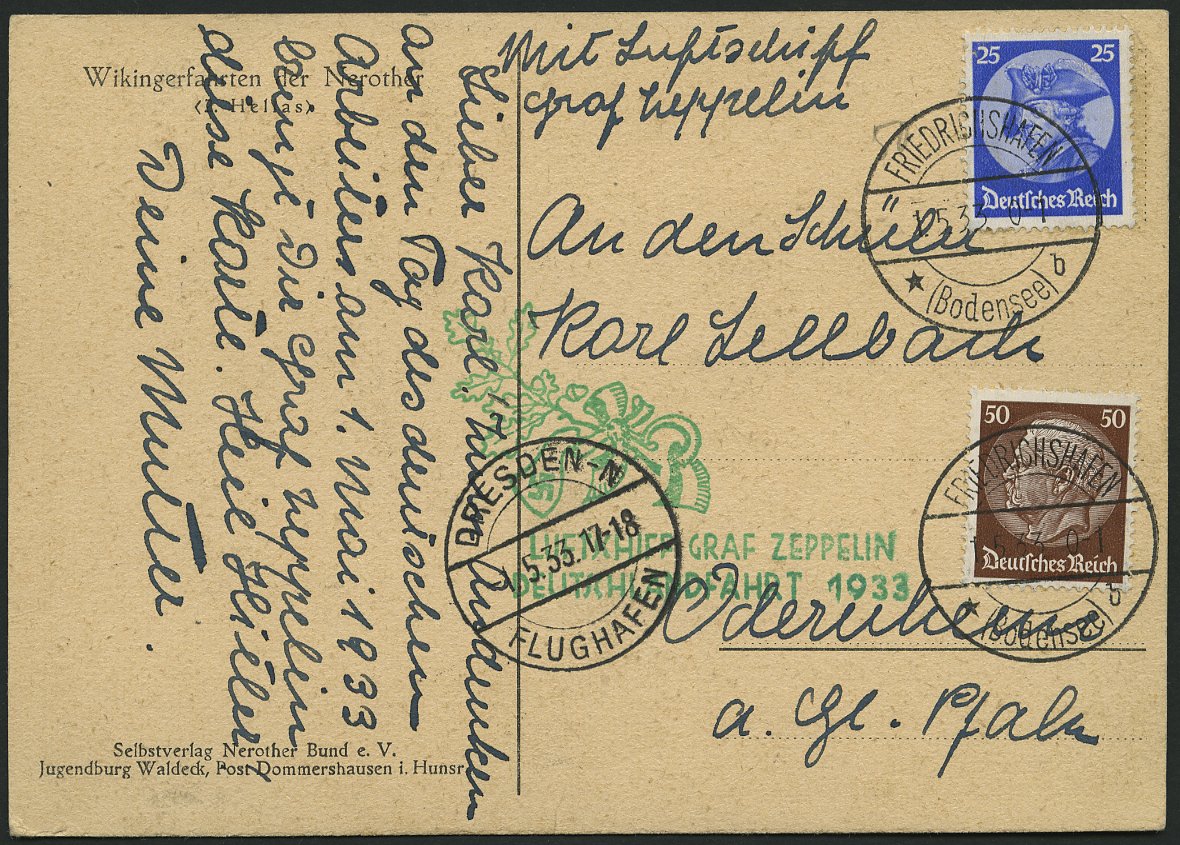 Wikingerfahrten der Nerother
(I. Hellas)
Lieber Karl. Zum Andenken
an den Tag des deutschen
Arbeiters am 1. Mai 1933
bringt Dir Graf Zeppelin
diese Karte. Heil Hitler
Deine Mutter.
Selbstverlag Nerother Bund e. V.
Jugendburg Waldeck, Post Dommershausen i. Hunsr.
Mit Luftschiff
Graf Zeppelin
An den Schüler
Karl Sellbach
Odernheim
a. Gl. Pfalz
25 25
Deutsches Reich
FRIEDRICHSHAFEN
1.5.33. 0-1
b
(Bodensee)
50 50
Deutsches Reich
FRIEDRICHSHAFEN
1.5.33. 0-1
b
(Bodensee)
DRESDEN-N
5.33.17-18
FLUGHAFEN
LUFTSCHIFF GRAF ZEPPELIN
DEUTSCHLANDFAHRT 1933